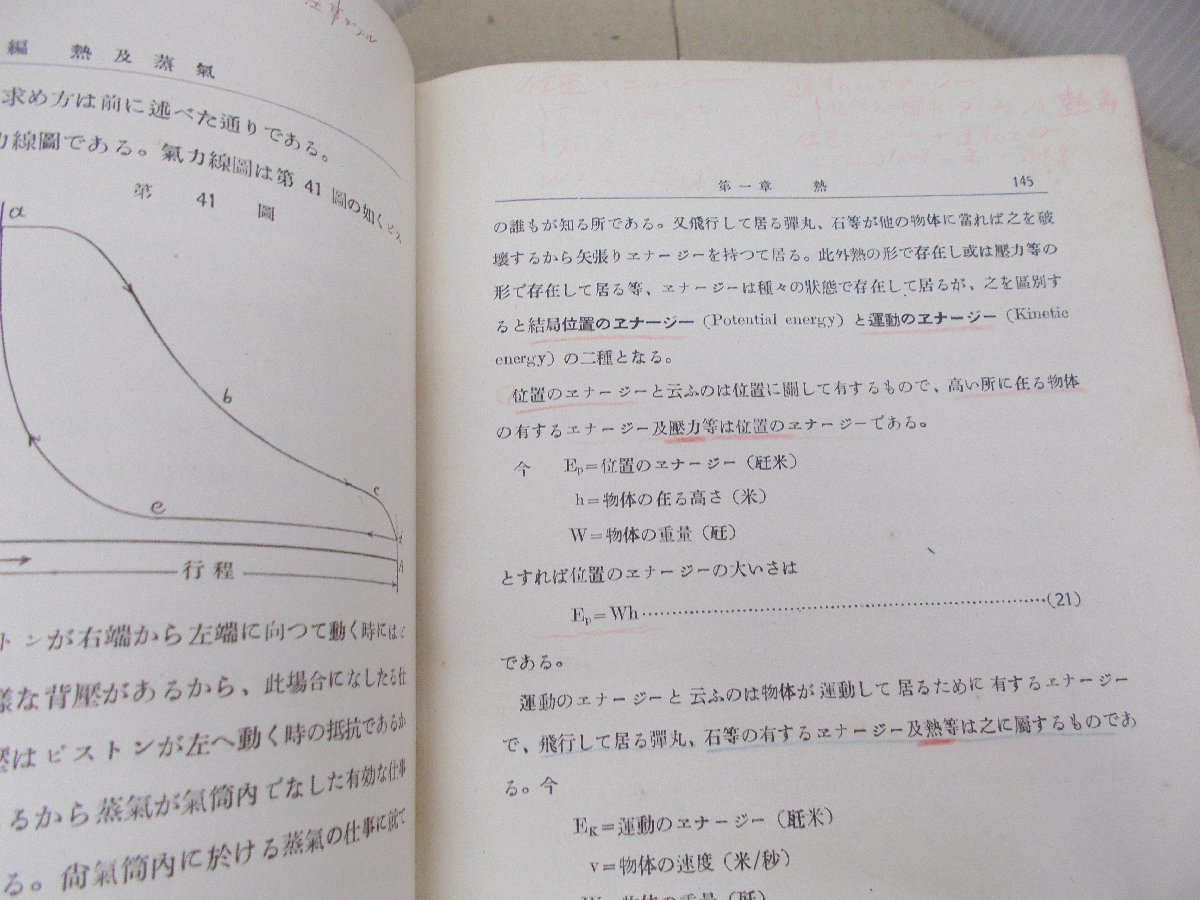 編 熱及蒸氣
求め方は前に述べた通りである。
力線圖である。氣力線圖は第 41 圖の如くピス
第 41 圖
a
b
c
e
行程
トンが右端から左端に向つて動く時には
様な背壓があるから、此場合になしたる仕
壓はピストンが左へ動く時の抵抗であるか
るから蒸氣が氣筒內でなした有効な仕事
る。尙氣筒內に於ける蒸氣の仕事に就て
第一章 熱 145
の誰もが知る所である。又飛行して居る彈丸、石等が他の物体に當れば之を破
壞するから矢張りヱナージーを持つて居る。此外熱の形で存在し或は壓力等の
形で存在して居る等、ヱナージーは種々の狀態で存在して居るが、之を區別す
ると結局位置のヱナージー（Potential energy）と運動のヱナージー（Kinetic
energy）の二種となる。
位置のヱナージーと云ふのは位置に關して有するもので、高い所に在る物体
の有するエナージー及壓力等は位置のヱナージーである。
今 Ep=位置のヱナージー（瓩米）
h=物体の在る高さ（米）
W=物体の重量（瓩）
とすれば位置のヱナージーの大いさは
Ep=Wh……………………………………………………………(21)
である。
運動のエナージーと云ふのは物体が運動して居るために有するエナージー
で、飛行して居る彈丸、石等の有するヱナージー及熱等は之に屬するものであ
る。今
EK=運動のヱナージー（瓩米）
v=物体の速度（米/秒）
W=物体の重量（瓩）